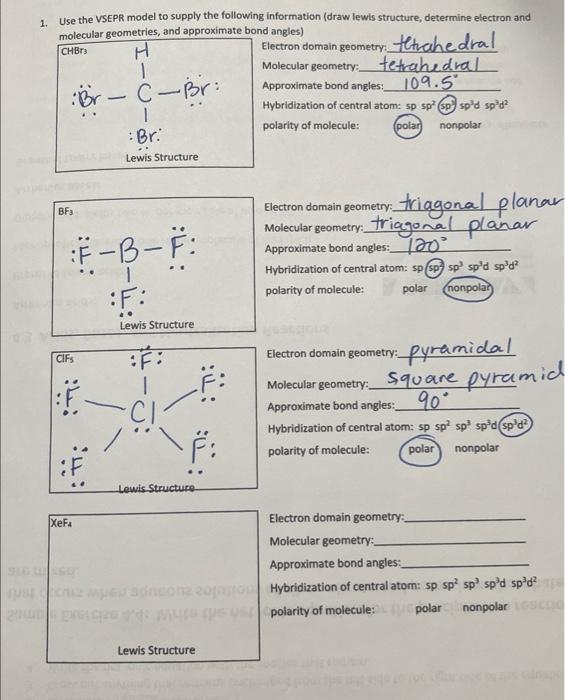 1. Use the VSEPR model to supply the following information (draw lewis structure, determine electron and
molecular geometries, and approximate bond angles)
CHBr₃
H
:Br – C – Br:
:Br:
Lewis Structure
Electron domain geometry: tetrahedral
Molecular geometry: tetrahedral
Approximate bond angles: 109.5°
Hybridization of central atom: sp sp² sp³ sp³d sp³d²
polarity of molecule: polar nonpolar
BF₃
:F – B – F:
:F:
Lewis Structure
Electron domain geometry: triagonal planar
Molecular geometry: triagonal planar
Approximate bond angles: 120°
Hybridization of central atom: sp sp² sp³ sp³d sp³d²
polarity of molecule: polar nonpolar
ClF₅
:F:
:F F:
Cl
:F F:
Lewis Structure
Electron domain geometry: pyramidal
Molecular geometry: square pyramid
Approximate bond angles: 90°
Hybridization of central atom: sp sp² sp³ sp³d sp³d²
polarity of molecule: polar nonpolar
XeF₄
Lewis Structure
Electron domain geometry:
Molecular geometry:
Approximate bond angles:
Hybridization of central atom: sp sp² sp³ sp³d sp³d²
polarity of molecule: polar nonpolar